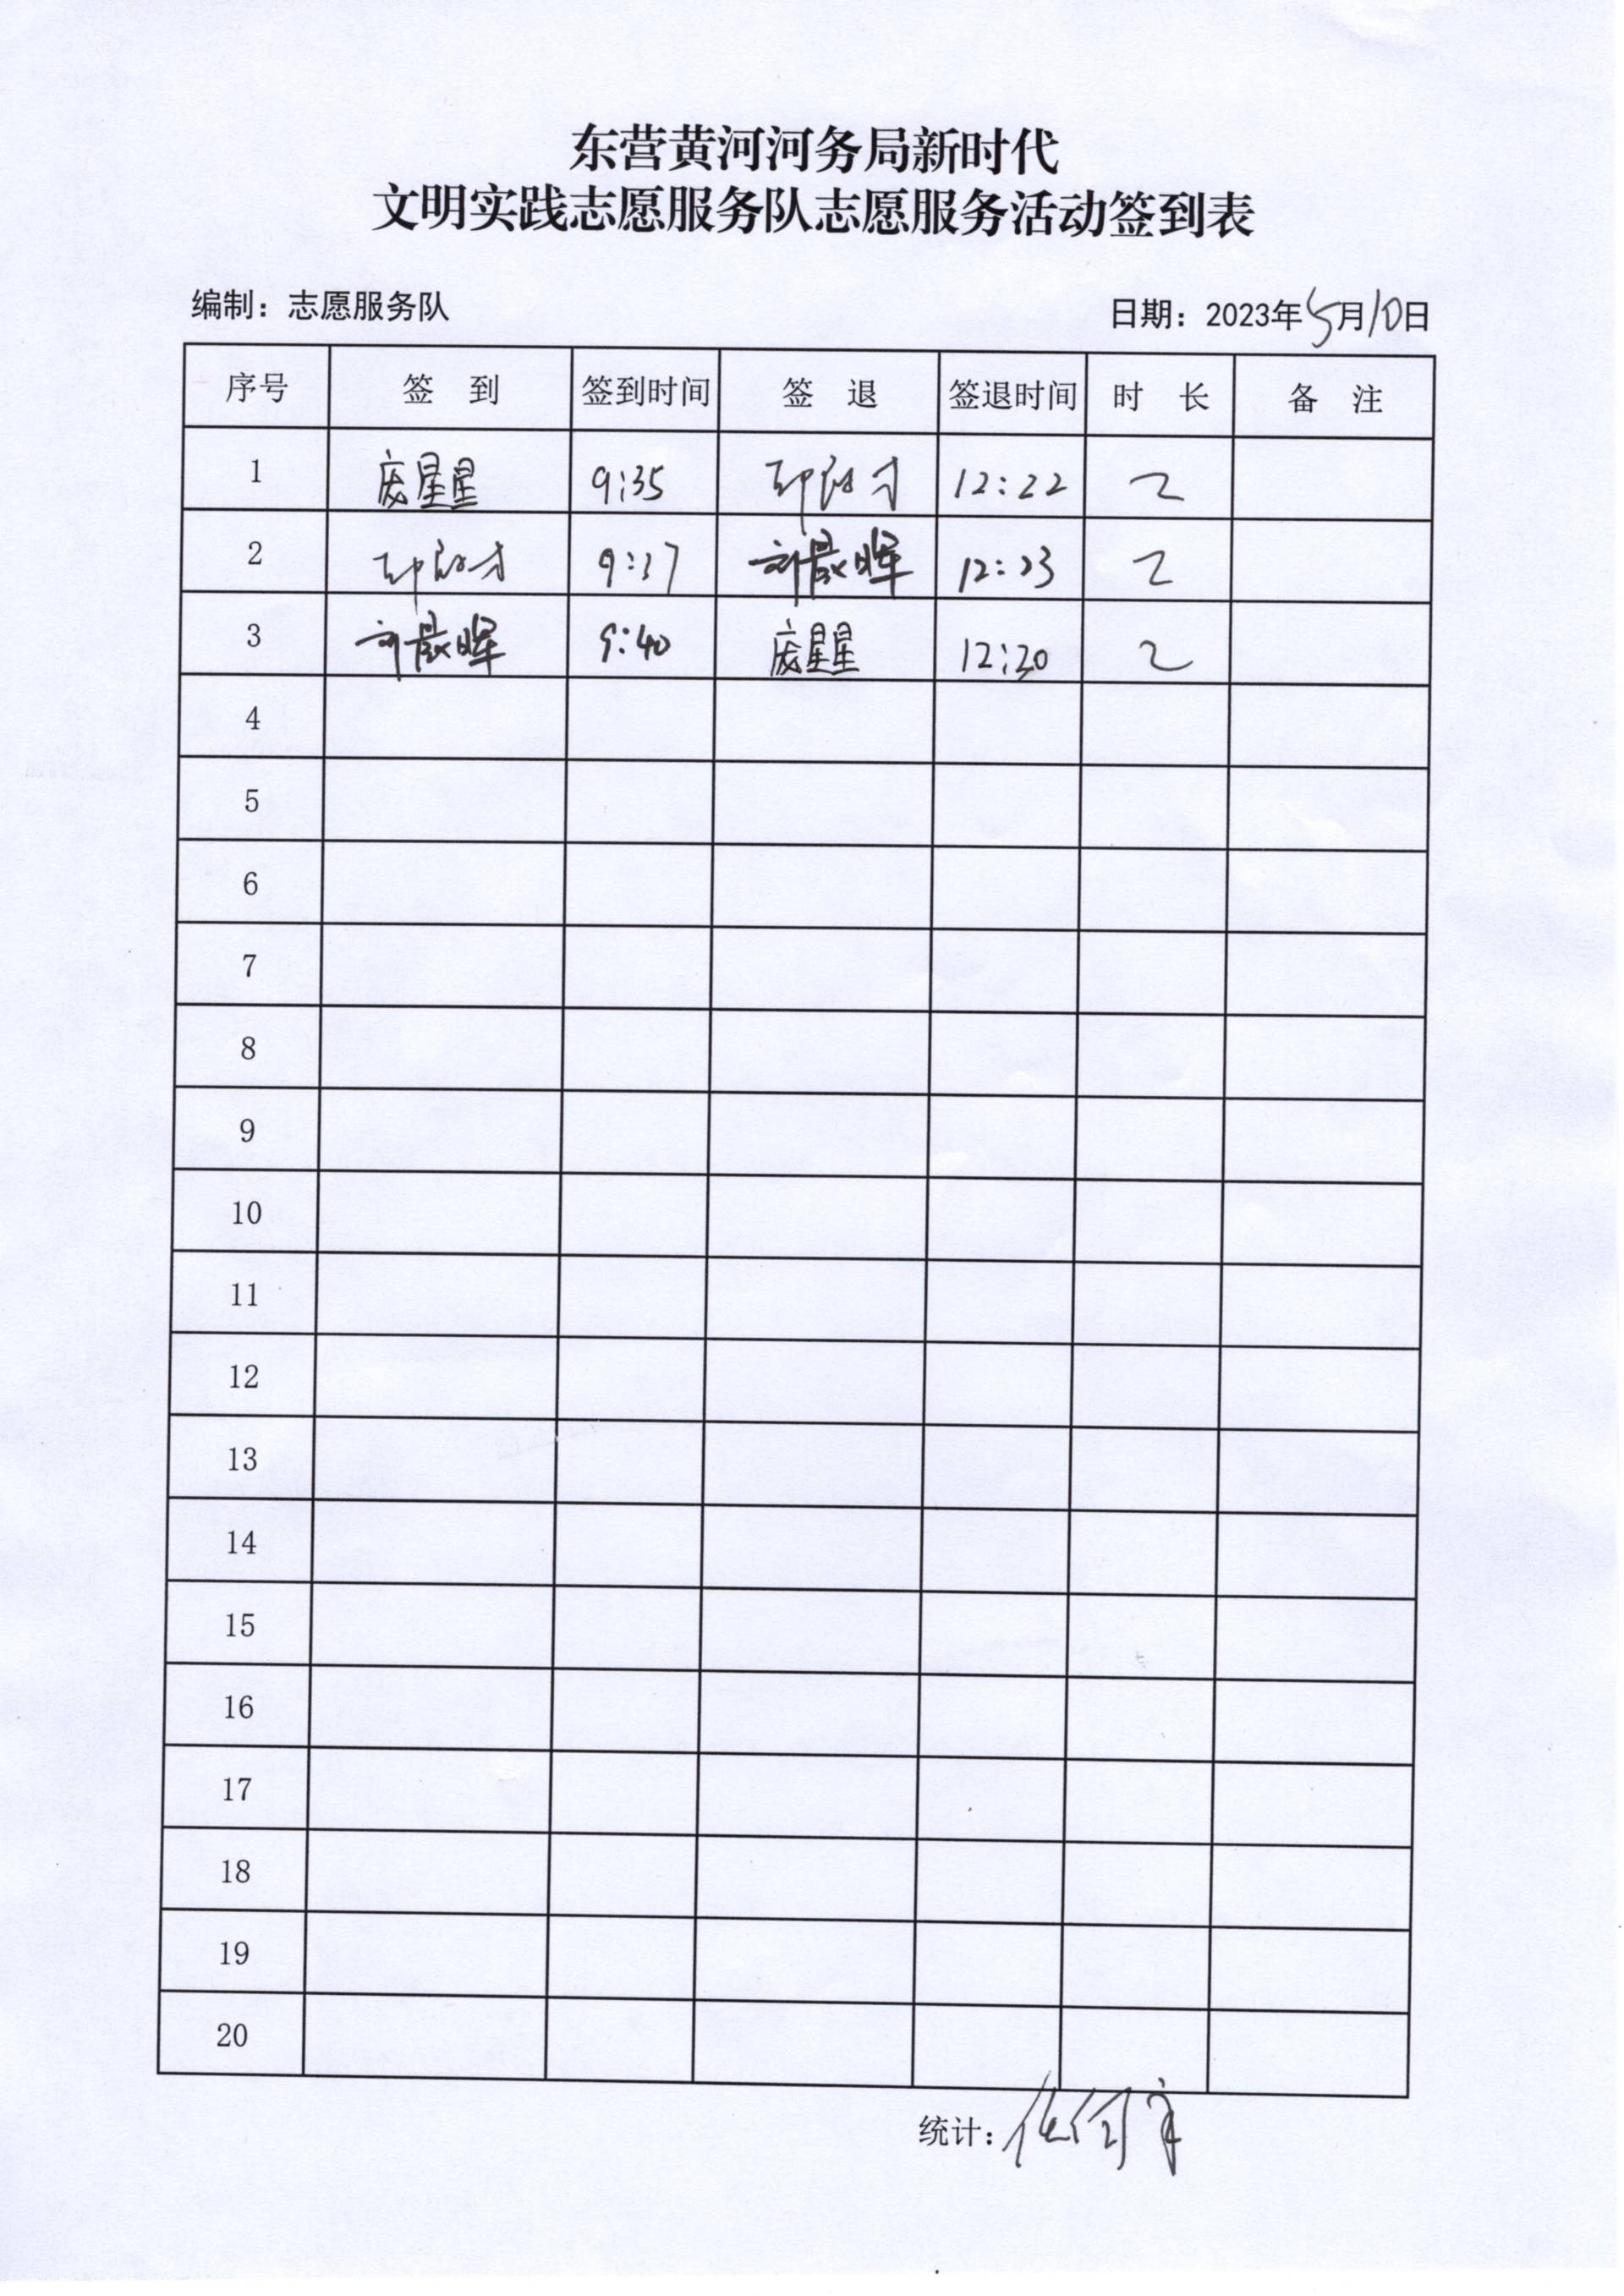 东营黄河河务局新时代
文明实践志愿服务队志愿服务活动签到表
编制：志愿服务队 日期：2023年5月10日
序号 签 到 签到时间 签 退 签退时间 时 长 备 注
1 庞星星 9:35 12:22 2
2 9:37 刘晨晖 12:23 2
3 刘晨晖 9:40 庞星星 12:20 2
4
5
6
7
8
9
10
11
12
13
14
15
16
17
18
19
20
统计：